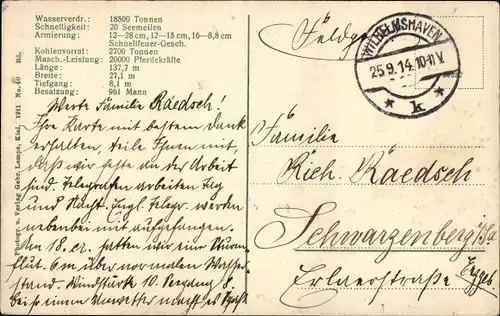 Wasserverdr.: 18500 Tonnen
Schnelligkeit: 20 Seemeilen
Armierung: 12—28 cm, 12—15 cm, 16—8,8 cm
Schnellfeuer-Gesch.
Kohlenvorrat: 2700 Tonnen
Masch.-Leistung: 20000 Pferdekräfte
Länge: 137,7 m
Breite: 27,1 m
Tiefgang: 8,1 m
Besatzung: 961 Mann
Photogr. u. Verlag Gebr. Lempe, Kiel, 1911 No.
Werte Familie Raedsch!
Ihre Karte mit bestem Dank
erhalten, teile Ihnen mit,
daß wir feste an der Arbeit
sind. Telegrafen arbeiten Tag
und Nacht. Engl. Telegr. werden
nebenbei mit aufgefangen.
Am 18. cr. hatten wir eine
flut. 6 m über normalen Wasser-
stand. Windstärke 10.
bei so einem Unwetter macht es Spaß
WILHELMSHAVEN
25.9.14.10-11V.
* k *
Familie
Rich. Raedsch
Schwarzenberg i/Sa
Erlaerstraße